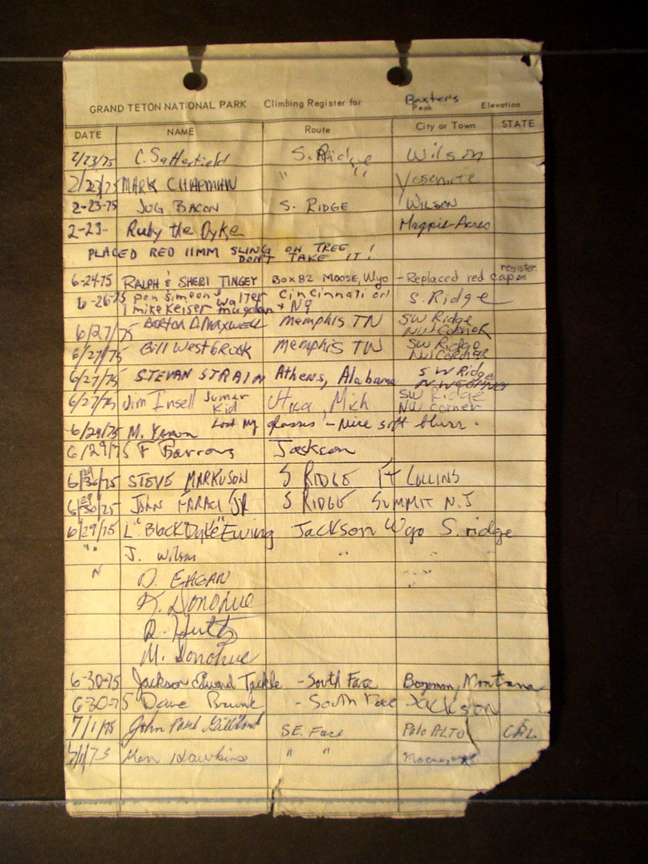 GRAND TETON NATIONAL PARK Climbing Register for Baxters Peak Elevation
DATE NAME Route City or Town STATE
2/23/75 C. Satterfield S. Ridge Wilson
2/23/75 MARK CHAPMAN " " Yosemite
2-23-75 JUG BACON S. RIDGE WILSON
2-23- Ruby the Dyke Magpie Acres
PLACED RED 11MM SLING ON TREE!
DON'T TAKE IT!
6-24-75 RALPH & SHERI TINGEY Box 82 MOOSE, Wyo - Replaced red register
6-26-75 Don Simeon Walter Cincinnati OH S. Ridge
mike Keiser + NQ
6/27/75 BARTON D. MAXWELL Memphis TN SW Ridge
NW Corner
6/27/75 Bill Westbrook Memphis TN SW Ridge
NW Corner
6/27/75 STEVAN STRAIN Athens, Alabama SW Ridge
6/27/75 Jim Insell Jumar Kid Utica, Mich SW Ridge
NW corner
6/29/75 M. Lost my glasses - nice soft blurr.
6/29/75 F Barrows Jackson
6/30/75 STEVE MARKUSON S RIDGE FT COLLINS
6/30/75 JOHN FARACI JR S RIDGE SUMMIT N.J
6/29/75 L "Black Dyke" Ewing Jackson Wyo S. ridge
" " J. Wilson " "
" D. EAGAN " "
K. Donohue
R. Hutz
M. Donohue
6-30-75 Jackson Edward Tackle - South Face Bozeman, Montana
6-30-75 Dave - South Face Jackson
7/1/75 John Paul Gilliland SE. Face Palo ALTO CAL.
7/1/75 Hawkins " "